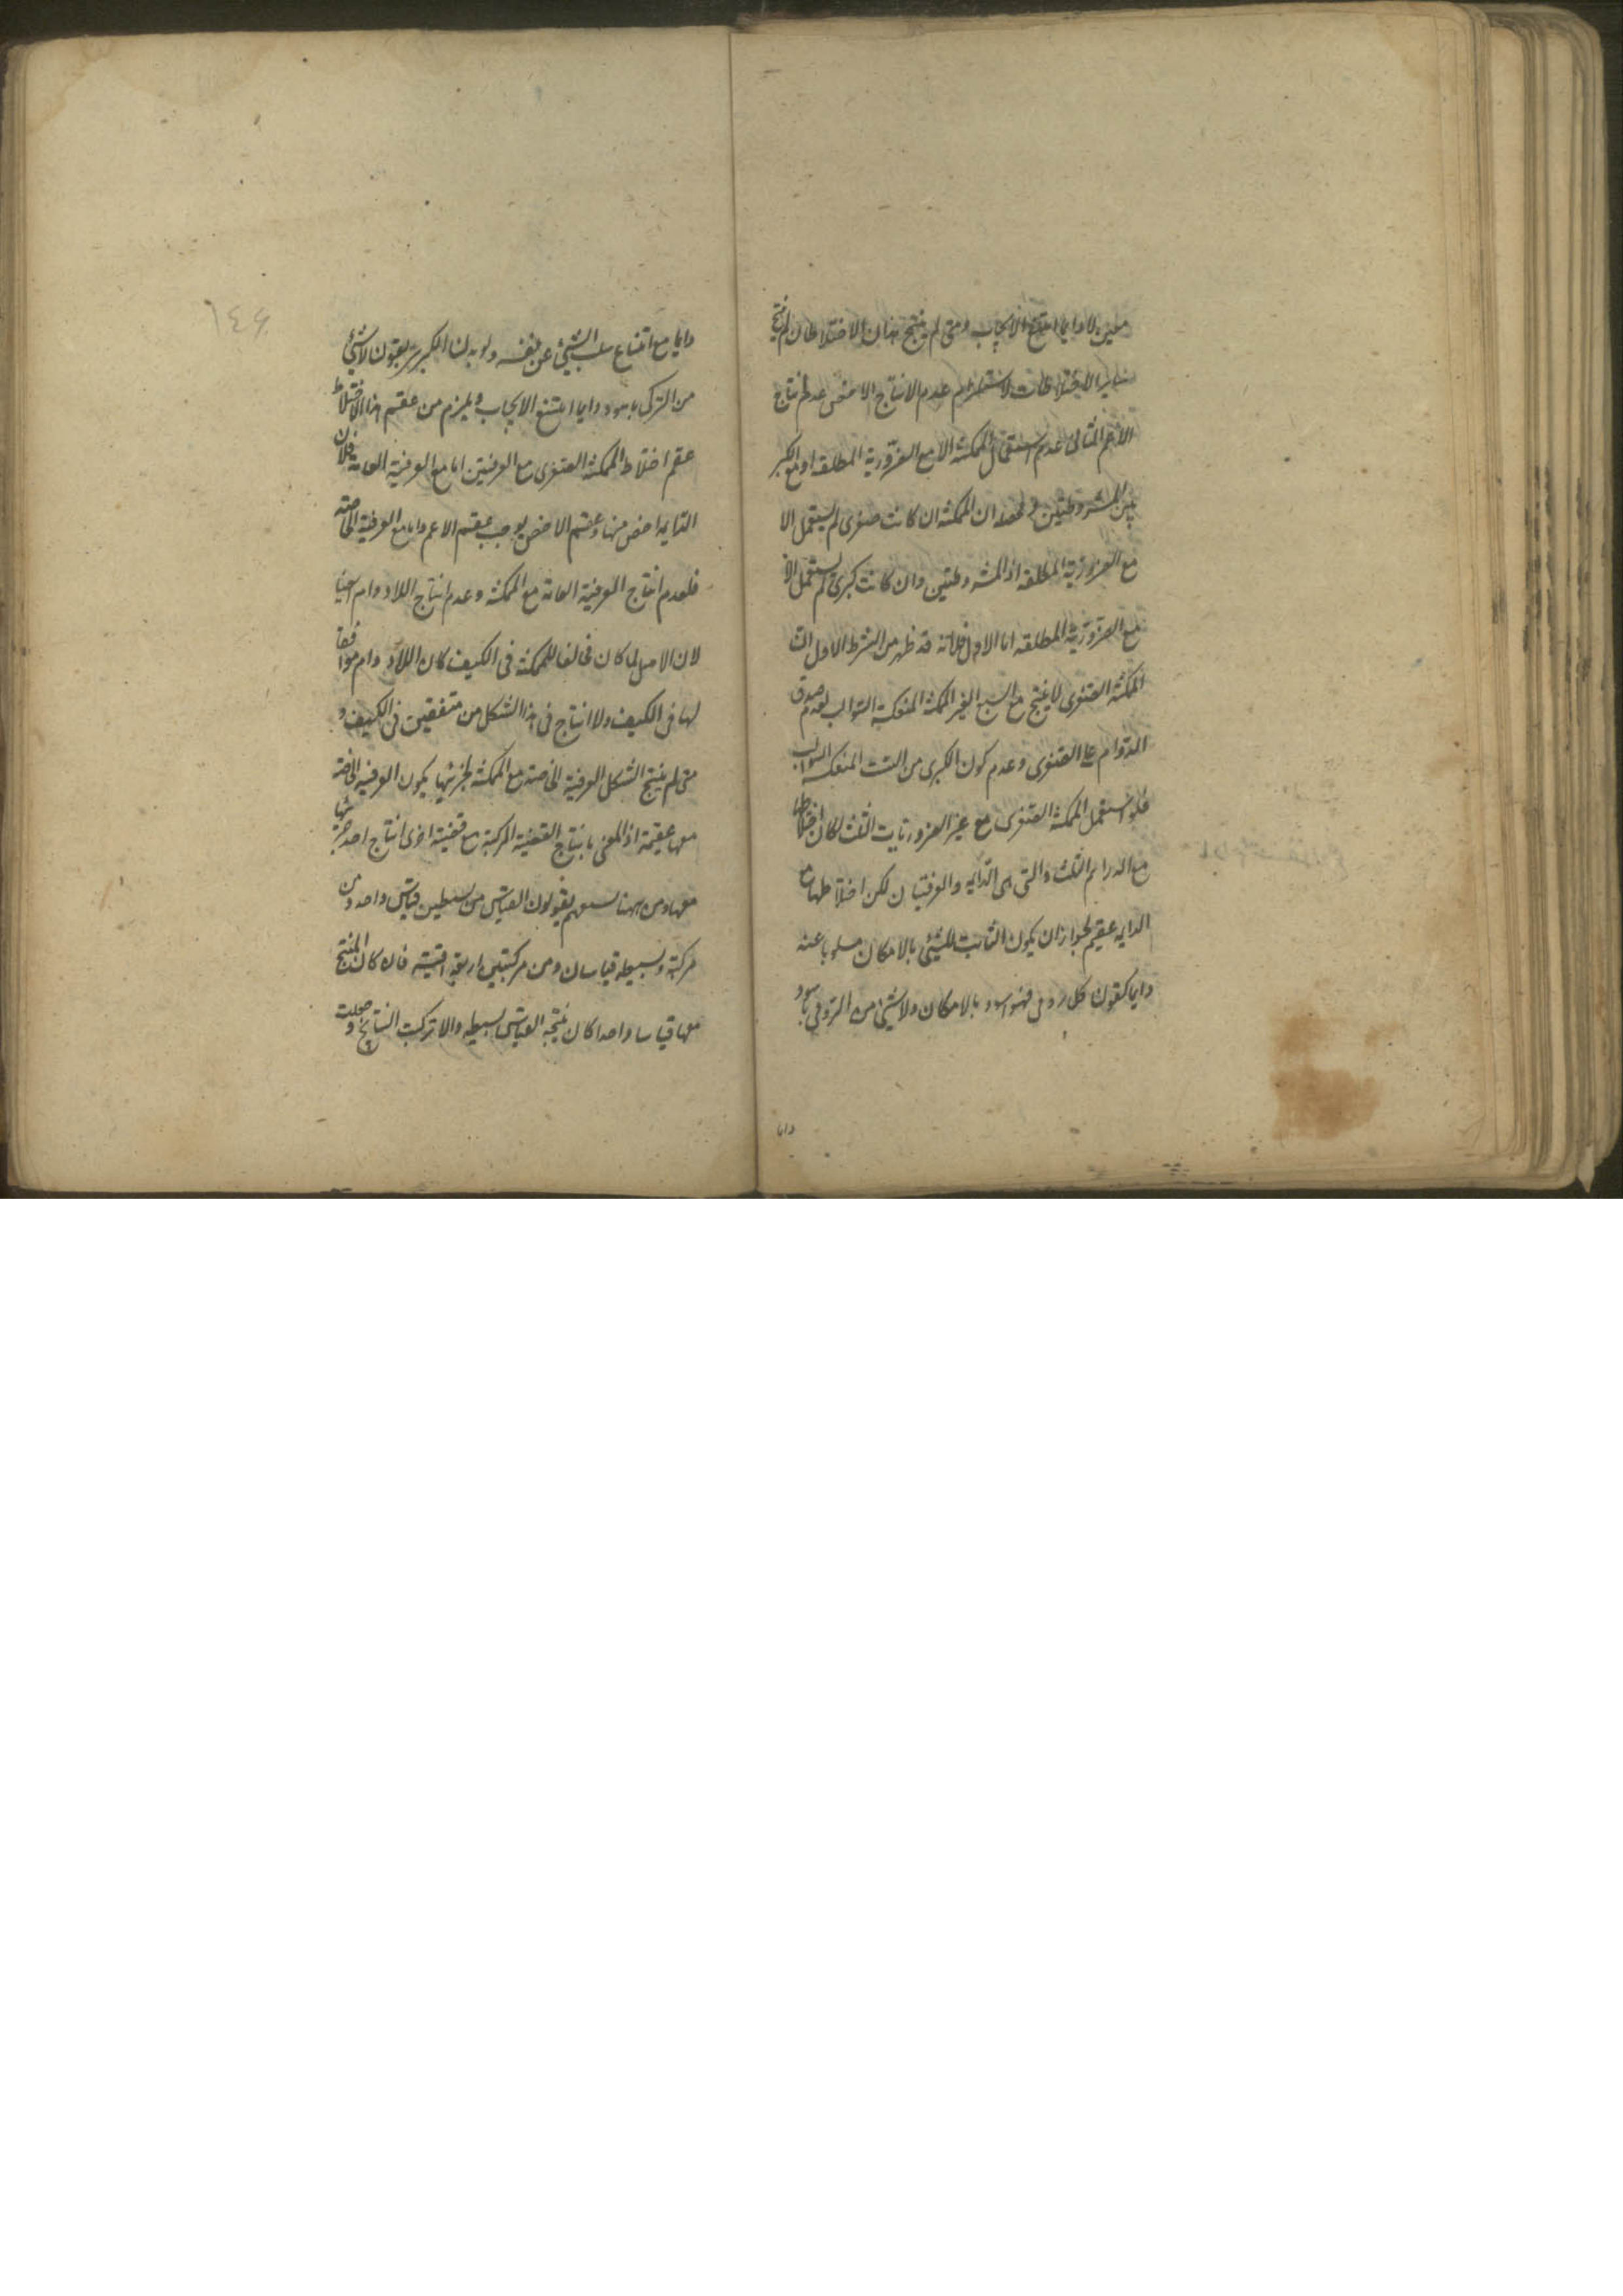 معين لا دايما امتنع الايجاب ومتى لم ينتج هذان الاختلاطان لم ينتج
ساير الاختلاطات لاستلزام عدم الانتاج الاخص عدم انتاج
الاعم الثانى عدم استعمال الممكنة الا مع الضرورية المطلقة او مع الكبر
يين المشروطتين ومحصله ان الممكنة ان كانت صغرى لم يستعمل الا
مع الضرورية المطلقة او المشروطتين وان كانت كبرى لم يستعمل الا
مع الضرورية المطلقة اما الاول فلانه قد ظهر من الشرط الاول ان
الممكنة الصغرى لا ينتج مع السبع الغير الممكنة المنعكسة السوالب لعدم صدق
الدوام على الصغرى وعدم كون الكبرى من الست المنعكسة السوالب
فلو استعمل الممكنة الصغرى مع غير الضروريات الثلث لكان اختلاطها
مع الدوايم الثلث والتى هى الدايمه والعرفيتان لكن اختلاطها مع
الدايمه عقيم لجواز ان يكون الثابت للشىء بالامكان مسلوبا عنه
دايما كقولنا كل رومى فهو اسود بالامكان ولا شىء من الرومى باسود
دايما
١٤٦
دايما مع امتناع سلب الشىء عن نفسه ولو بدلنا الكبرى بقولنا لا شىء
من التركى باسود دايما امتنع الايجاب ويلزم من عقم هذا الاختلاط
عقم اختلاط الممكنة الصغرى مع العرفيتين اما مع العرفية العامة فلان
الدايمه اخص منها وعقم الاخص يوجب عقم الاعم واما مع العرفية الخاصة
فلعدم انتاج العرفية العامة مع الممكنة وعدم انتاج اللادوام ايضا
لان الاصل لما كان مخالفا للممكنة فى الكيف كان اللادوام موافقا
لها فى الكيف ولا انتاج فى هذا الشكل من متفقين فى الكيف و
متى لم ينتج الشكل العرفية الخاصة مع الممكنة بجزئيها يكون العرفية الخاصة
معها عقيمة اذ المعنى بانتاج القضية المركبة مع قضية اخرى انتاج احد جزئيها
معها ومن ههنا تسمعهم يقولون القياس من بسيطتين قياس واحد ومن
مركبة وبسيطه قياسان ومن مركبتين اربعة اقيسة فان كان المنتج
منها قياسا واحدا كان نتيجة القياس بسيطه والا تركبت النتايج وجعلت